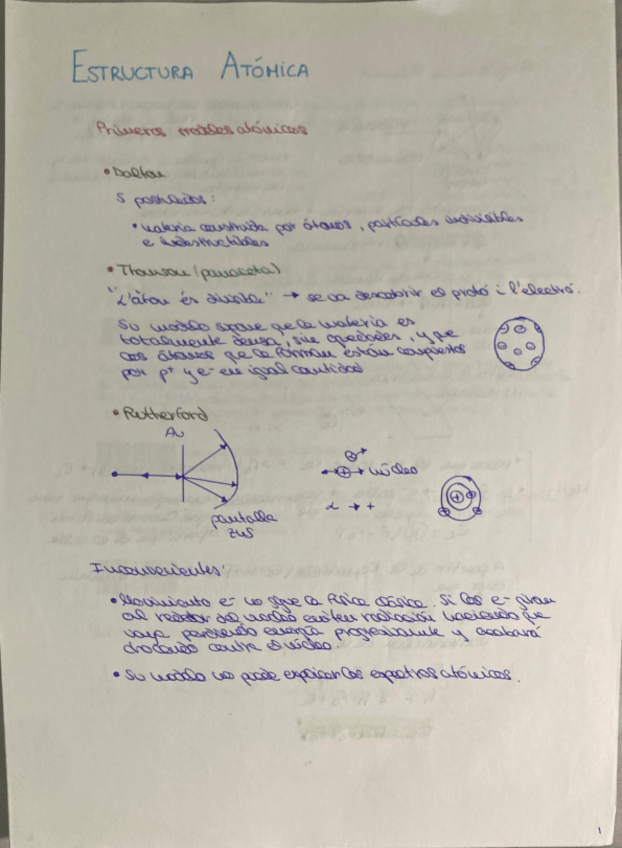 ESTRUCTURA ATÓMICA
Primeros modelos atómicos
• Dalton
5 postulados:
• materia constituida por átomos, partículas indivisibles
e indestructibles
• Thomson (panaceta)
"L'àtom és divisible" → se va descobrir el protó i l'electró.
Su modelo sigue que la materia es
totalmente densa, sin oquedades, y que
los átomos que la forman están compuestos
por p+ y e- en igual cantidad
• Rutterford
Au
núcleo
α → +
pantalla
ZnS
Inconvenientes:
• Movimiento e- no sigue la física clásica. Si los e- giran
al rededor del núcleo emiten radiación haciendo que
vaya perdiendo energía progresivamente y acabará
chocando contra el núcleo.
• Su modelo no puede explicar los espectros atómicos.
1